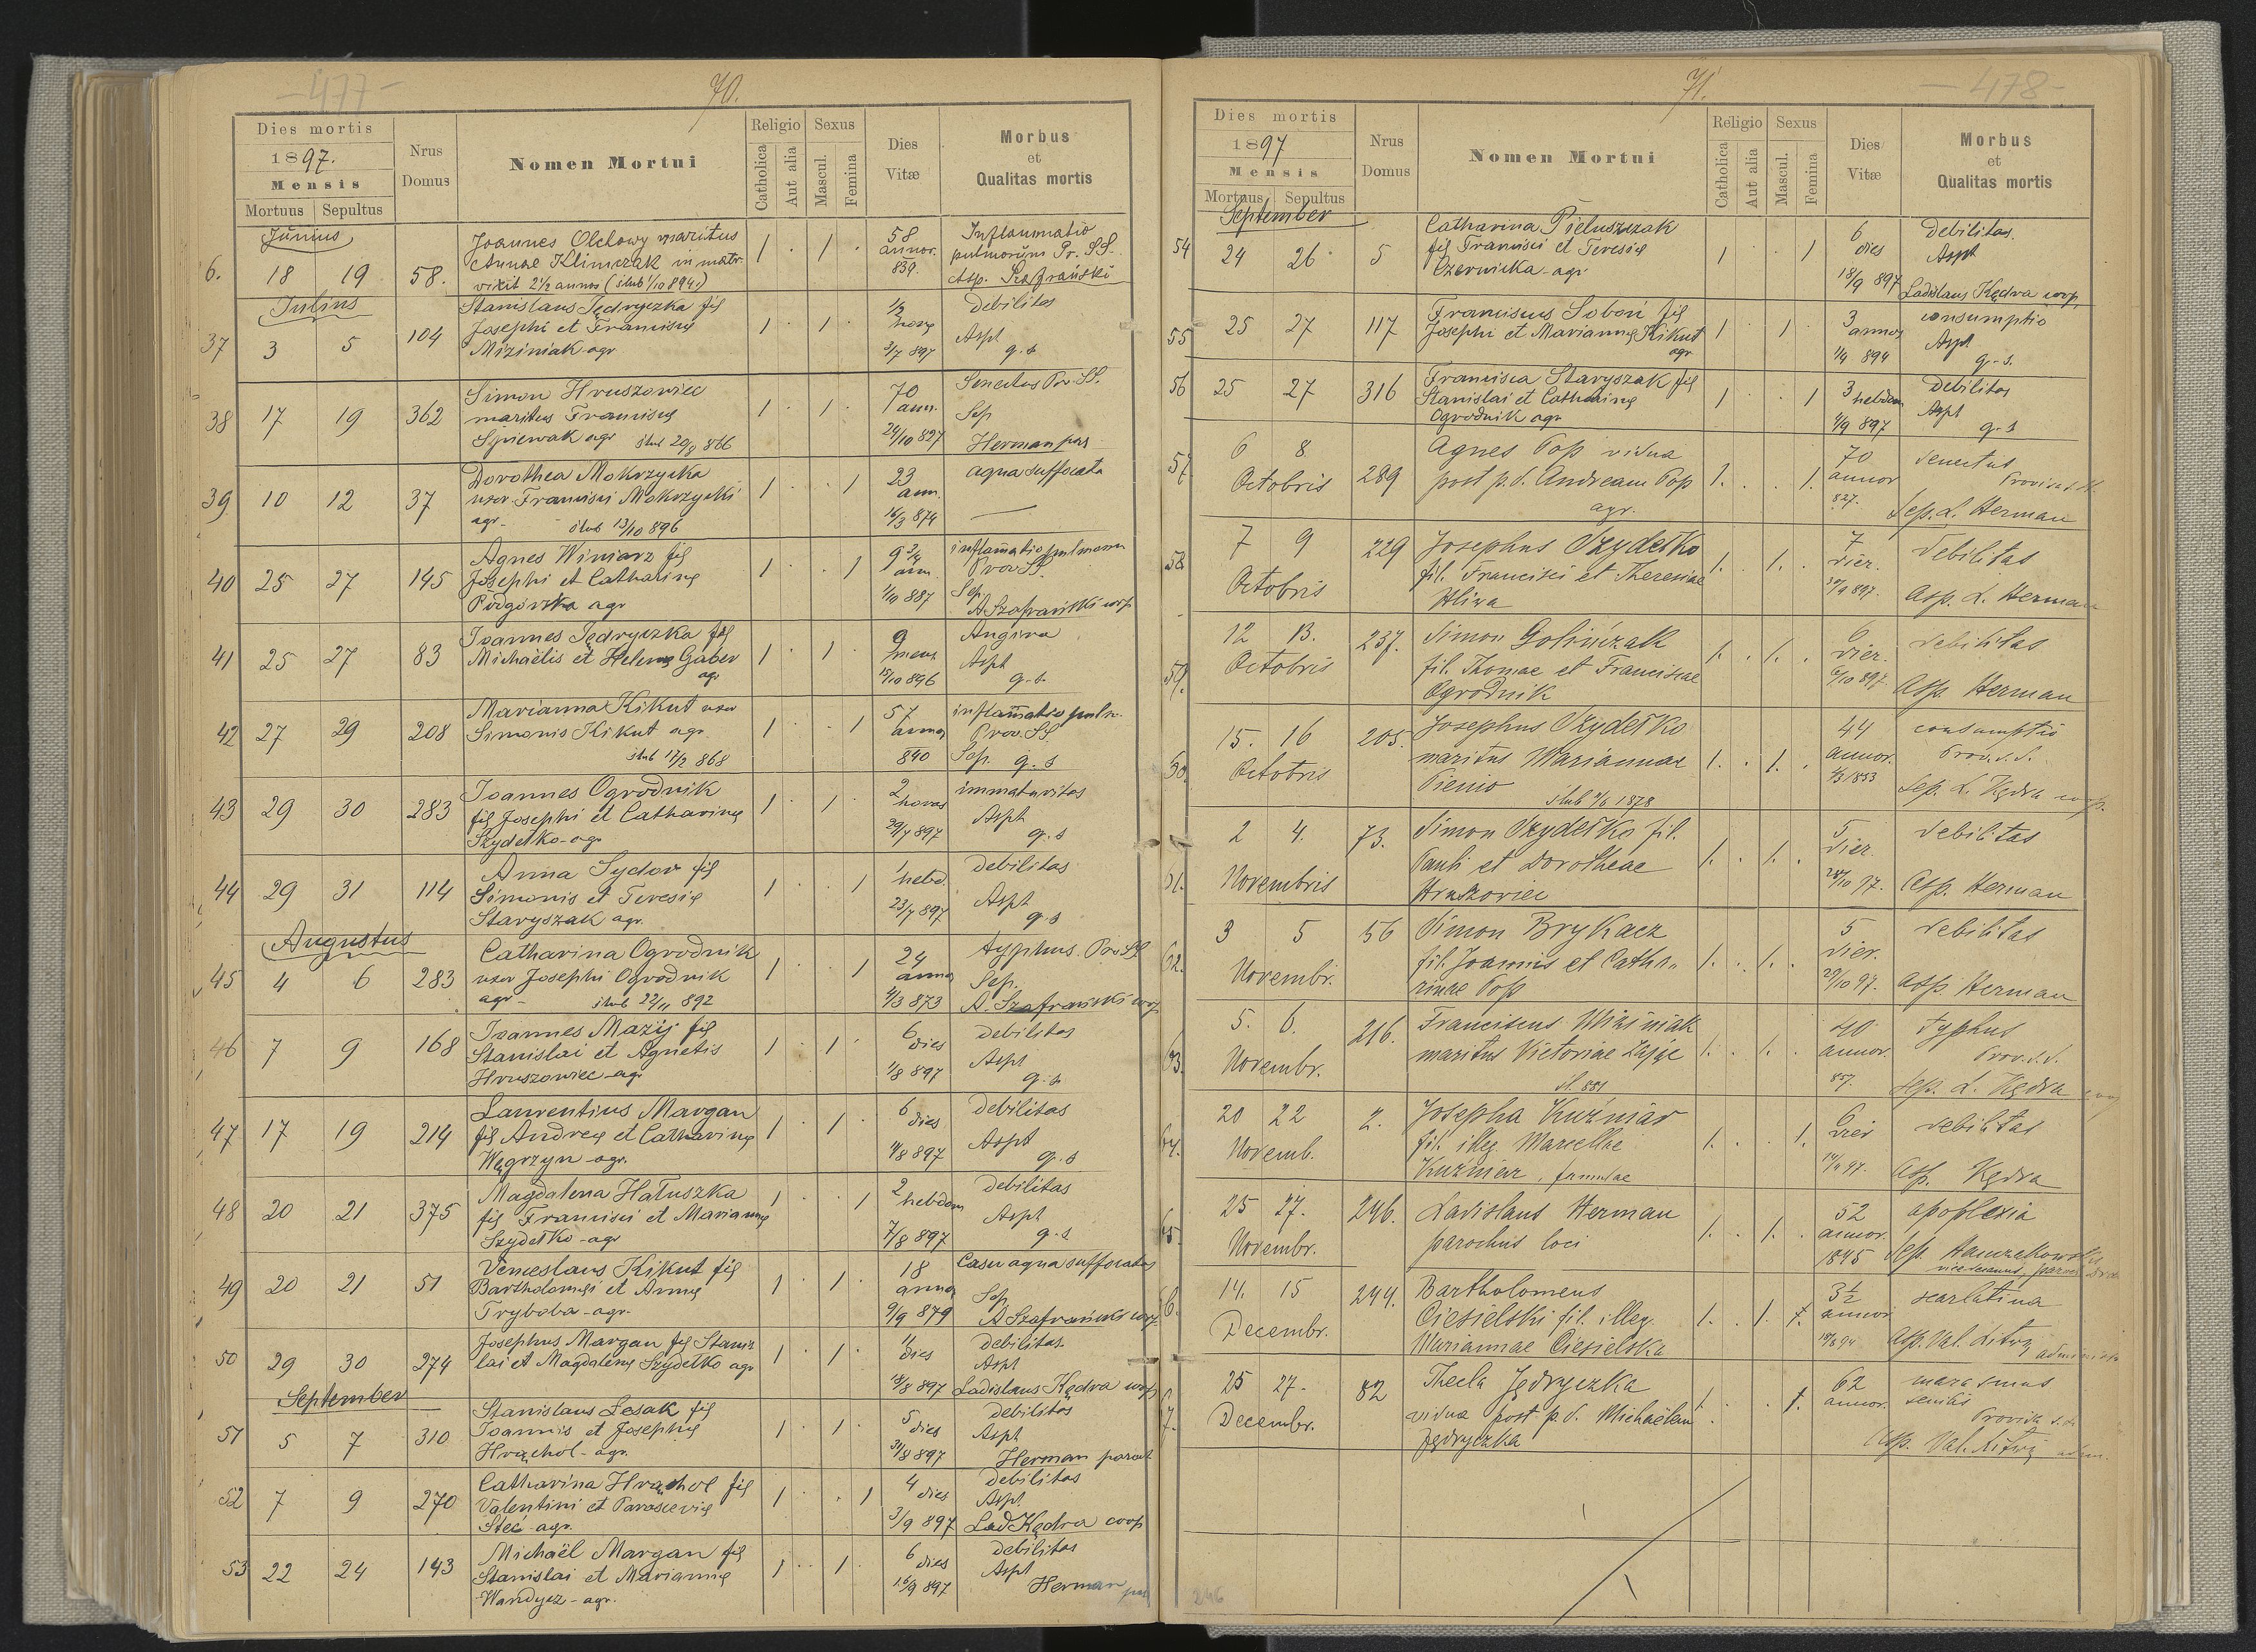 - 477 -
70.
Dies mortis
1897.
Mensis
Mortuus Sepultus
Nrus Domus
Nomen Mortui
Religio
Catholica
Aut alia
Sexus
Mascul.
Femina
Dies Vitæ
Morbus et Qualitas mortis
Junius
6. 18 19 58. Joannes Olchowy maritus 1 . 1 . 58 Inflammatio
Annae Klimczak in matr. annor. pulmorum Pr. SS.
vixit 2½ annos (ślub 1/10 894.) 839. Asp. Szafrański
Julius
37 3 5 104 Stanislaus Jędryczka fil 1 . 1 . ½ Debilitas
Josephi et Francisię horę Aspt
Miziniak agr 3/7 897 q.s
38 17 19 362 Simon Hruszowiec 1 . 1 . 70 Senectus Pr. SS.
maritus Francisię ann. Sep
Spiewak agr ślub 20/8 866 24/10 827 Herman par
39 10 12 37 Dorothea Mokrzycka 1 . . 1 23 aqua suffocata
uxor Francisci Mokrzycki ann.
agr- ślub 13/10 896 16/3 874
40 25 27 145 Agnes Winiarz fil 1 . . 1 9 3/4 inflamatio pulmonum
Josephi et Catharinę ann. Prov SS.
Podgórska agr 1/10 887 Sep A Szafrański coop
41 25 27 83 Joannes Jędryczka fil 1 . 1 . 9 Angina
Michaëlis et Helenę Gaber mens Aspt
agr 15/10 896 q.s.
42 27 29 208 Marianna Kikut uxor 1 . . 1 57 inflamatio pulm.
Simonis Kikut agr. annor Prov. SS
ślub 17/2 868 840 Sep. q.s
43 29 30 283 Joannes Ogrodnik 1 . 1 . 2 immaturitas
fil Josephi et Catharinę horas Aspt
Szydełko-agr 29/7 897 q.s
44 29 31 114 Anna Sydor fil 1 . . 1 1 Debilitas
Simonis et Teresię hebd. Aspt
Staryszak agr. 23/7 897 q.s
Augustus
45 4 6 283 Catharina Ogrodnik 1 . . 1 24 typhus. Pr. SS
uxor Josephi Ogrodnik annor Sep.
agr- ślub 22/11 892 4/3 873 A. Szafrański coop
46 7 9 168 Joannes Mazij fil 1 . 1 . 6 debilitas
Stanislai et Agnetis dies Aspt
Hruszowiec-agr 1/8 897 q.s
47 17 19 214 Laurentius Margan 1 . 1 . 6 debilitas
fil Andreę et Catharinę dies Aspt
Węgrzyn-agr. 11/8 897 q.s
48 20 21 375 Magdalena Hałuszka 1 . . 1 2 debilitas
fil Francisci et Mariannę hebdom Aspt
Szydełko-agr 7/8 897 q.s
49 20 21 51 Venceslaus Kikut fil 1 . 1 . 18 Casu aqua suffocatus
Bartholomęi et Annę annor Sep
Tryboba-agr. 9/9 879 A Szafrański coop
50 29 30 274 Josephus Margan fil Stanis 1 . 1 . 11 debilitas.
lai et Magdalenę Szydełko agr dies Aspt
18/8 897 Ladislaus Kędra coop
September
51 5 7 310 Stanislaus Lesak fil 1 . 1 . 5 debilitas
Joannis et Josephę dies Aspt
Hrąchol-agr. 31/8 897 Herman paroch
52 7 9 270 Catharina Hrąchol fil 1 . . 1 4 debilitas
Valentini et Parascevię dies Aspt.
Steć-agr. 3/9 897 Lad Kędra coop
53 22 24 143 Michaël Margan fil 1 . 1 . 6 debilitas
Stanislai et Mariannę dies Aspt
Wandycz-agr. 16/9 897 Herman par
71.
- 478 -
Dies mortis
1897
Mensis
Mortuus Sepultus
Nrus Domus
Nomen Mortui
Religio
Catholica
Aut alia
Sexus
Mascul.
Femina
Dies Vitæ
Morbus et Qualitas mortis
September
54 24 26 5 Catharina Pieluszczak 1 . . 1 6 debilitas.
fil Francisci et Teresię dies Aspt
Czernicka-agr 18/9 897 Ladislaus Kędra coop
55 25 27 117 Franciscus Soboń fil 1 . 1 . 3 consumptio
Josephi et Mariannę Kikut annor Aspt
agr 1/4 894 q.-s.
56 25 27 316 Francisca Staryszak fil 1 . . 1 3 debilitas
Stanislai et Catharinę hebdom Aspt
Ogrodnik agr 4/9 897 q.s
57 6 8 289 Agnes Pop vidua 1. . . 1. 70 senectus
Octobris post p.d. Andream Pop annor Provisa
agr. 827. Sep. L. Herman
58. 7 9 229 Josephus Szydełko 1. . 1. . 7 Debilitas
Octobris fil. Francisci et Theresiae dier.
Hliwa 30/9 897. Asp. L. Herman
59. 12 13. 237. Simon Golińczak 1. . 1. . 6 debilitas
Octobris fil. Thomae et Franciscae dier.
Ogrodnik 6/10 897. Asp Herman
60. 15. 16 205. Josephus Szydełko 1. . 1. . 44 consumptio
Octobris maritus Mariannae annor. Prov. s.s.
Pienio ślub 1878 1853 Sep. L. Kędra coop.
61. 2 4. 73. Simon Szydełko fil. 1. . 1. . 5 debilitas
Novembris Pauli et Dorotheae dier.
Hruszowiec 28/10 97. Asp. Herman
62. 3 5 56 Simon Brykacz 1. . 1. . 5 debilitas
Novembr. fil. Joannis et Catha- dier.
rinae Pop 29/10 97. Asp. Herman
63. 5. 6. 216. Franciscus Miziniak 1. . 1. . 40 typhus
Novembr. maritus Victoriae Zając annor. Prov. s.s.
śl. 881 857. Sep. L. Kędra coop
64. 20 22 2. Josepha Kuźniar 1. . . 1. 6 debilitas
Novemb. fil. illeg. Marcellae dier
Kuźniar, famulae 14/11 97. Asp. Kędra
65. 25 27. 246. Ladislaus Herman 1. . 1. . 52 apoplexia
Novembr. parochus loci annor.
1845 Sep.
66. 14. 15 244. Bartholomeus 1. . 1. 3½ scarlatina
Decembr. Ciesielski fil. illeg. annor
Mariannae Ciesielska 94 Asp. Val.
67. 25 27. 82 Thecla Jędryczka 1. . . 1. 62 marasmus
Decembr. vidua post p.d. Michaëlem annor. senilis
Jędryczka Provisa s.s.
Asp. Val. adm.
246